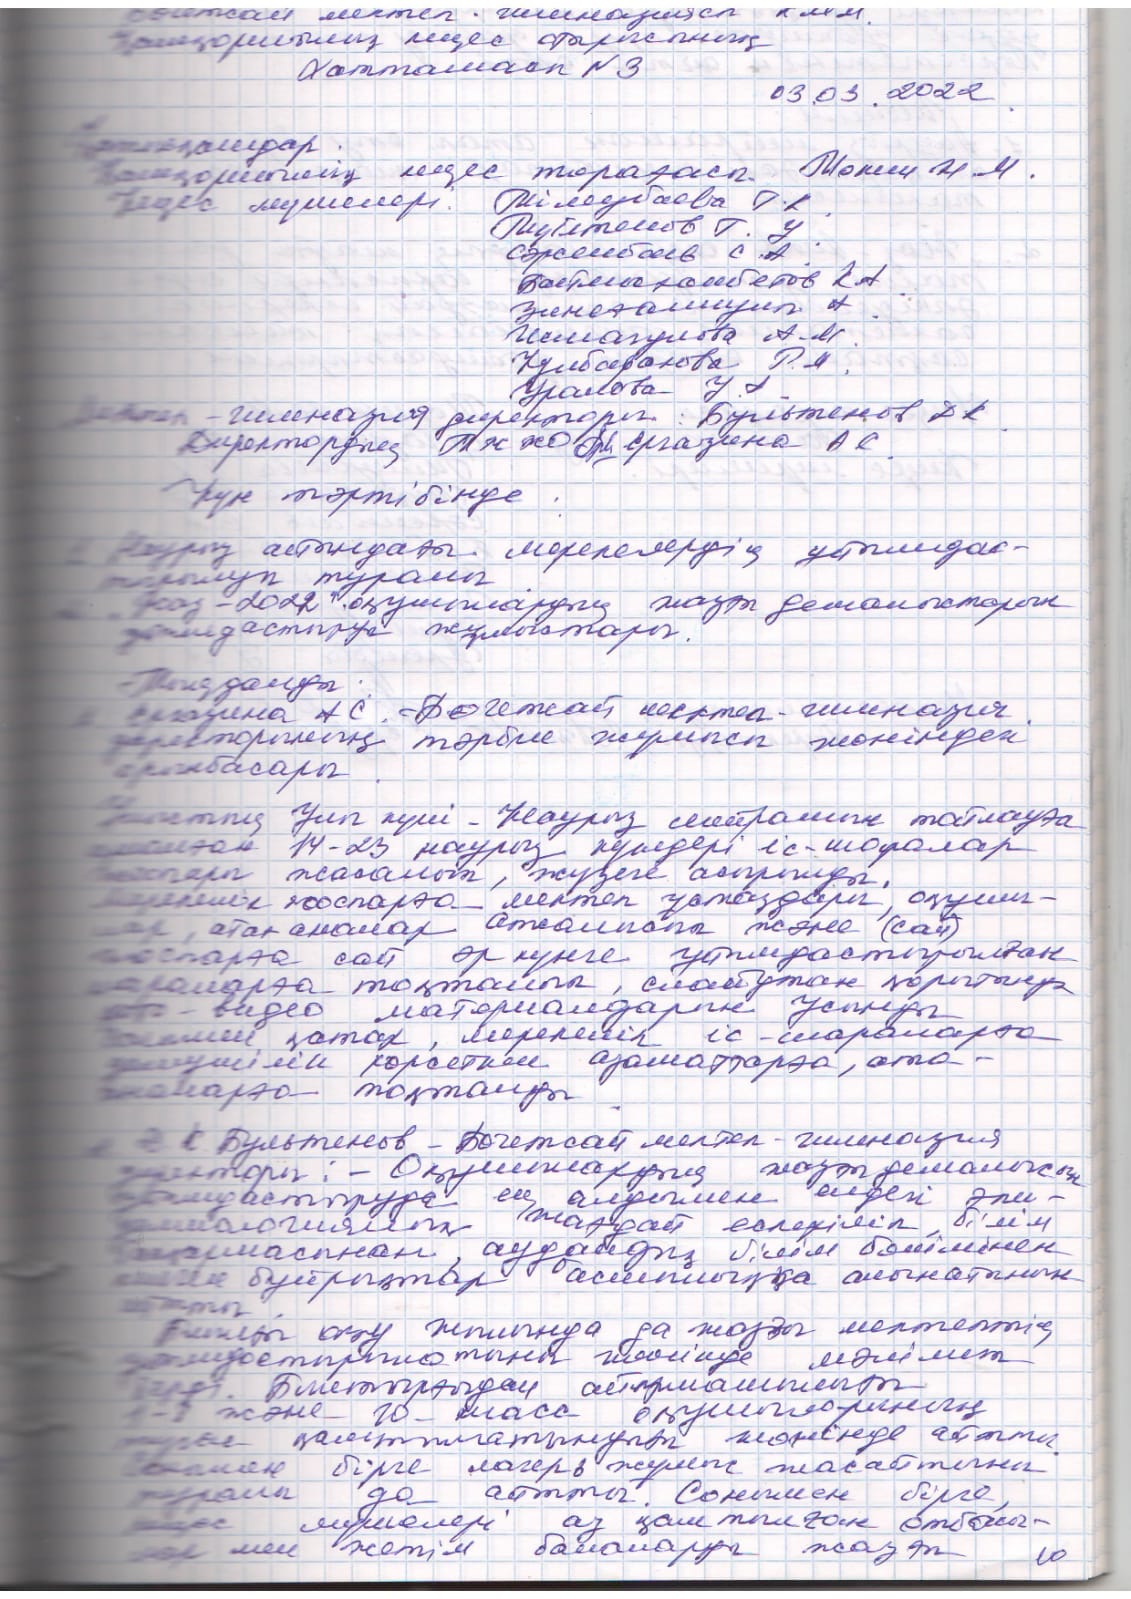 мектеп-гимназиясы КММ.
Қамқоршылық кеңес отырысының
Хаттамасы N3
03.03.2022
Қатысқандар.
Қамқоршылық кеңес төрағасы. Мокин Н.М.
Кеңес мүшелері. Тілеубаева Г.К.
Г. У
Сәрсенбаев С.А.
К.А.
А.
Исмагулова А.М.
Г.Я.
Уралова У.А.
Мектеп-гимназия директоры: Бультенов Д К
Директордың ТЖЖО Ергазина А С.
Күн тәртібінде:
1. Наурыз айындағы мерекелердің ұйымдас-
тырылуы туралы
2. "Жаз-2022" оқушылардың жазғы демалыстарын
ұйымдастыру жұмыстары.
-Тыңдалды:
Ергазина А С. -Бөгетсай мектеп-гимназия
директорының тәрбие жұмысы жөніндегі
орынбасары.
Ұлыстың Ұлы күні - Наурыз мейрамын тойлауға
14-23 наурыз күндері іс-шаралар
жоспары жасалып, жүзеге асырылды.
Мерекелік жоспарға мектеп ұстаздары, оқушы-
лар, ата-аналар атсалысты және (сай)
жоспарға сай әр күнге ұйымдастырылған
шараларға тоқталып, слайдтан қорытынды
фото-видео материалдарын ұсынды
Сонымен қатар, мерекелік іс-шараларға
көрсеткен азаматтарға, ата-
аналарға тоқталды.
2. Д К Бультенов - Бөгетсай мектеп-гимназия
директоры: - Оқушылардың жазғы демалысын
ұйымдастыруда ең алдымен елдегі эпи-
демиологиялық жағдай ескеріліп, білім
басқармасынан, аудандық білім бөлімінен
келген бұйрықтар басшылыққа алынатынын
айтты.
Биылғы оқу жылында да жазғы мектептің
ұйымдастырылатыны жөнінде мәлімет
берді. Былтырғыдан айырмашылығы
1-8 және 10-класс оқушыларының
толық қамтылатындығы жөнінде айтты.
Сонымен бірге лагерь жұмыс жасайтыны
туралы да айтты. Сонымен бірге,
кеңес мүшелері аз қамтылған отбасы-
лар мен жетім балаларды жазғы
10